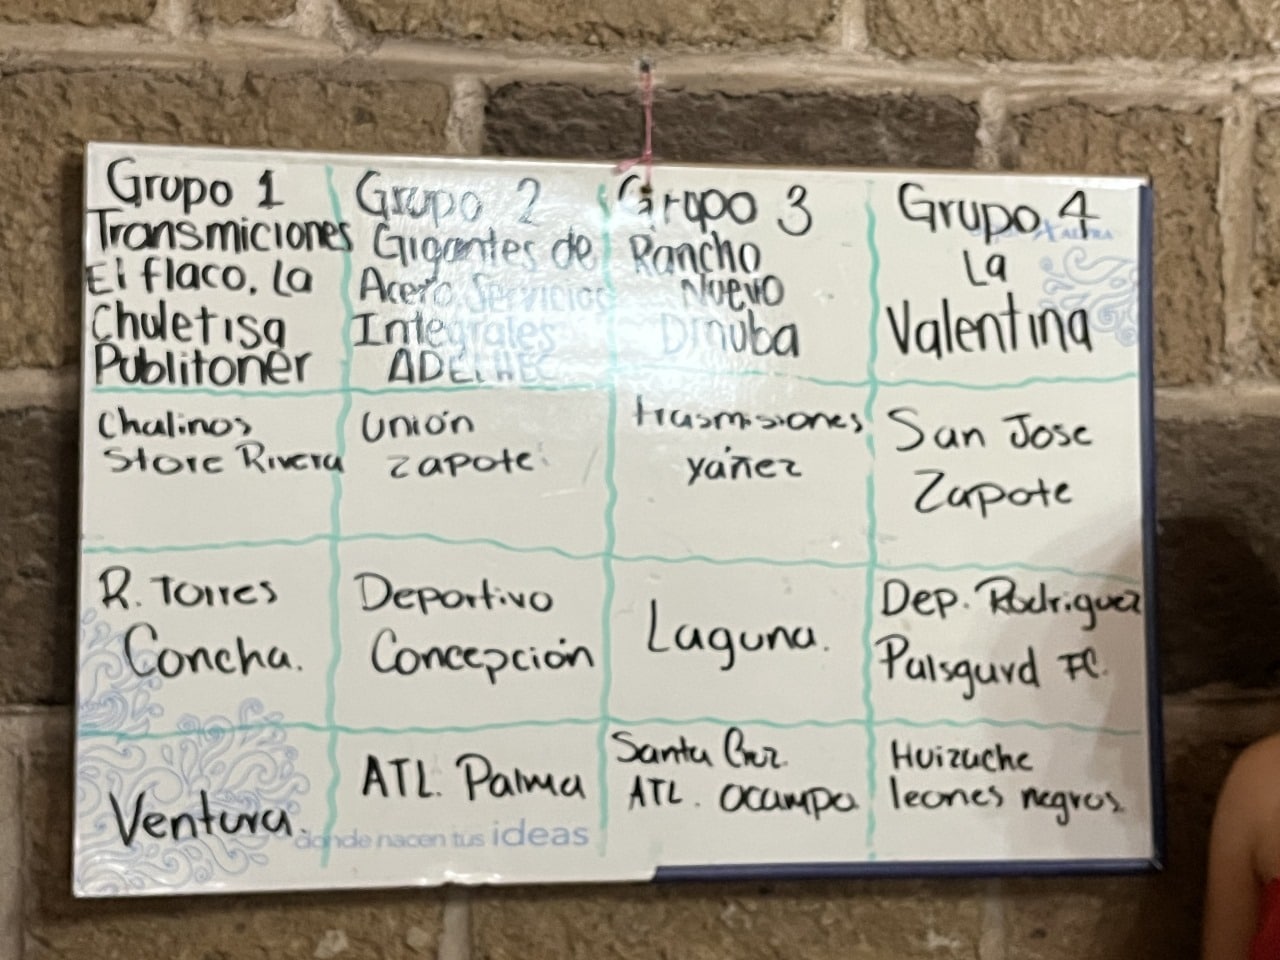 Grupo 1
Transmiciones
El flaco. La
Chuletisa
Publitoner
Chalinos
Store Rivera
R. Torres
Concha.
Ventura.
Grupo 2
Gigantes de
Acero Servicios
Integrales
ADELHEC
Unión
Zapote
Deportivo
Concepción
ATL. Palma
Grupo 3
Rancho
Nuevo
Dinuba
trasmisiones
yáñez
Laguna.
Santa Cruz
ATL. Ocampo
Grupo 4
La
Valentina
San Jose
Zapote
Dep. Rodriguez
Palsgard FC.
Huizache
leones negros
donde nacen tus ideas